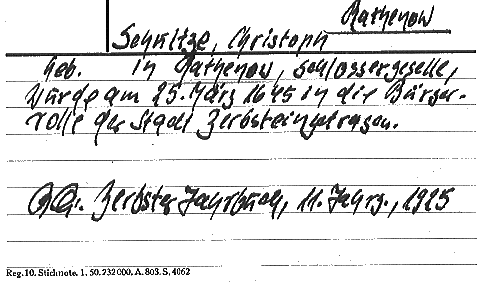 Rathenow
Schultze, Christoph
Geb. in Rathenow, Schlossergeselle,
wurde am 25. März 1645 in die Bürger-
rolle der Stadt Zerbst eingetragen.
Zerbster Jahrbuch, 11. Jahrg., 1925
Reg. 10. Stichnote. 1. 50. 232000. A. 803. S. 4062